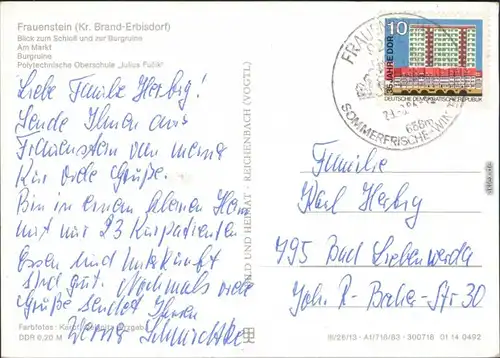 Frauenstein (Kr. Brand-Erbisdorf)
Blick zum Schloß und zur Burgruine
Am Markt
Burgruine
Polytechnische Oberschule „Julius Fučik"
Liebe Familie Herbrig!
Sende Ihnen aus
Frauenstein von meiner
Kur viele Grüße.
Bin in einem kleinen Heim
mit nur 23 Kurpatienten
Essen und Unterkunft
sind gut. Nochmals viele
Grüße sendet Ihnen
BILD UND HEIMAT · REICHENBACH (VOGTL)
10
35 JAHRE DDR
DEUTSCHE DEMOKRATISCHE REPUBLIK
SOMMERFRISCHE-WIN
Familie
Karl Herbrig
795 Bad Liebenwerda
Joh. R.-Becher-Str 30
Farbfotos:
DDR 0,20 M
III/26/13 · A1/716/83 · 300718 01 14 0492